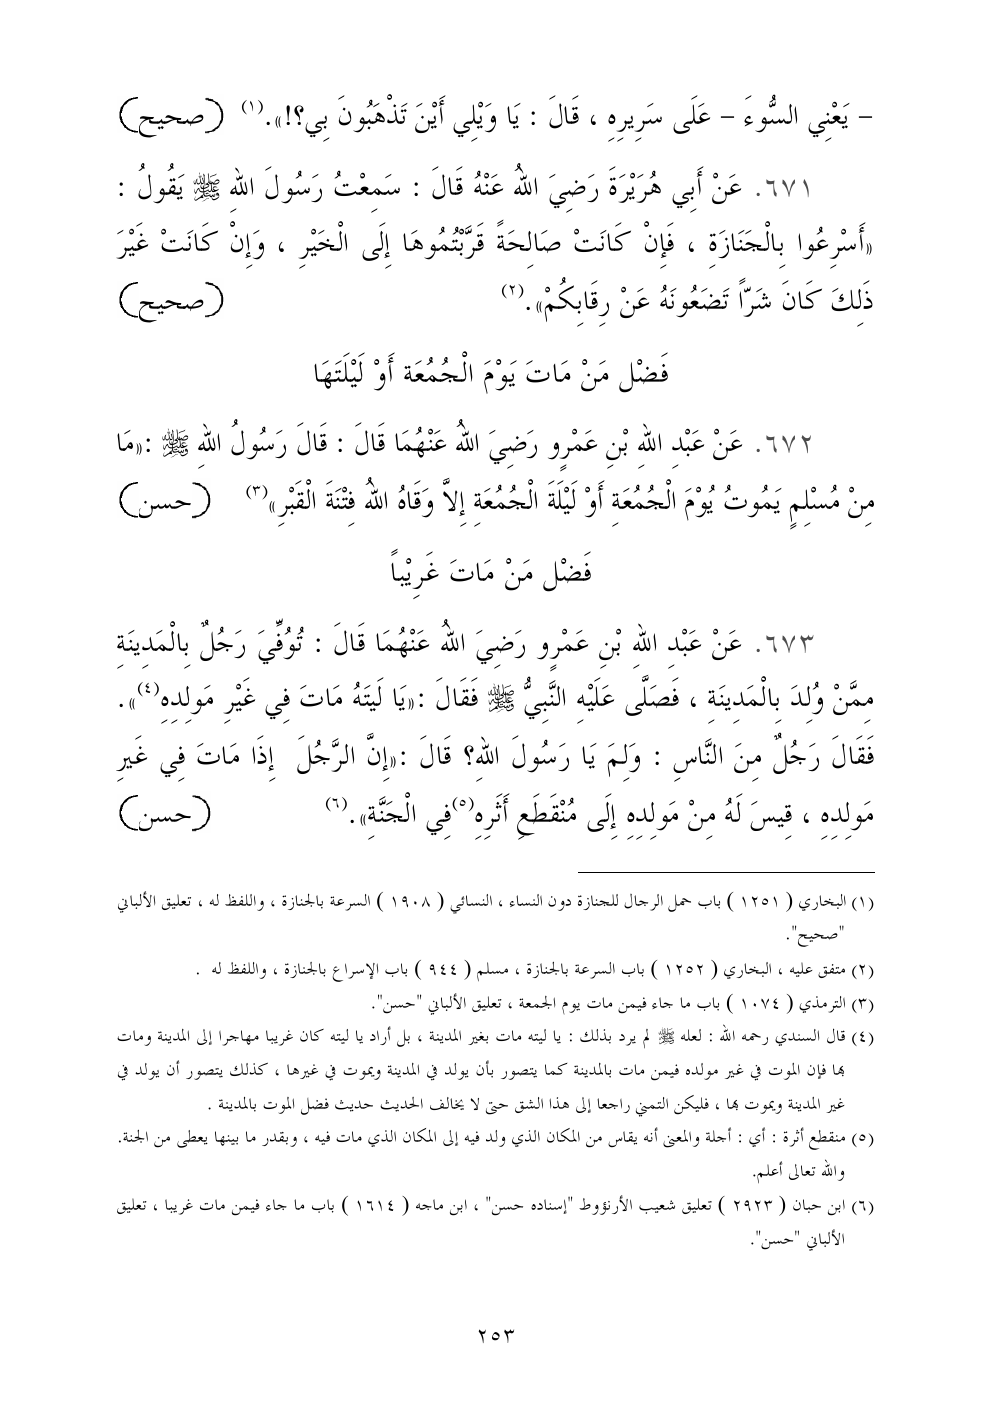 – يَعْنِي السُّوءَ – عَلَى سَرِيرِهِ ، قَالَ : يَا وَيْلِي أَيْنَ تَذْهَبُونَ بِي؟!». (١) (صحيح)
٦٧١. عَنْ أَبِي هُرَيْرَةَ رَضِيَ اللهُ عَنْهُ قَالَ : سَمِعْتُ رَسُولَ اللهِ ﷺ يَقُولُ :
«أَسْرِعُوا بِالْجَنَازَةِ ، فَإِنْ كَانَتْ صَالِحَةً قَرَّبْتُمُوهَا إِلَى الْخَيْرِ ، وَإِنْ كَانَتْ غَيْرَ
ذَلِكَ كَانَ شَرّاً تَضَعُونَهُ عَنْ رِقَابِكُمْ». (٢) (صحيح)
فَضْل مَنْ مَاتَ يَوْمَ الْجُمُعَة أَوْ لَيْلَتَهَا
٦٧٢. عَنْ عَبْدِ اللهِ بْنِ عَمْرٍو رَضِيَ اللهُ عَنْهُمَا قَالَ : قَالَ رَسُولُ اللهِ ﷺ :«مَا
مِنْ مُسْلِمٍ يَمُوتُ يُوْمَ الْجُمُعَةِ أَوْ لَيْلَةَ الْجُمُعَةِ إِلاَّ وَقَاهُ اللهُ فِتْنَةَ الْقَبْرِ» (٣) (حسن)
فَضْل مَنْ مَاتَ غَرِيْباً
٦٧٣. عَنْ عَبْدِ اللهِ بْنِ عَمْرٍو رَضِيَ اللهُ عَنْهُمَا قَالَ : تُوُفِّيَ رَجُلٌ بِالْمَدِينَةِ
مِمَّنْ وُلِدَ بِالْمَدِينَةِ ، فَصَلَّى عَلَيْهِ النَّبِيُّ ﷺ فَقَالَ :«يَا لَيتَهُ مَاتَ فِي غَيْرِ مَولِدِهِ (٤)».
فَقَالَ رَجُلٌ مِنَ النَّاسِ : وَلِمَ يَا رَسُولَ اللهِ؟ قَالَ :«إِنَّ الرَّجُلَ إِذَا مَاتَ فِي غَيرِ
مَولِدِهِ ، قِيسَ لَهُ مِنْ مَولِدِهِ إِلَى مُنْقَطَعِ أَثَرِهِ (٥)فِي الْجَنَّةِ». (٦) (حسن)
(١) البخاري ( ١٢٥١ ) باب حمل الرجال للجنازة دون النساء ، النسائي ( ١٩٠٨ ) السرعة بالجنازة ، واللفظ له ، تعليق الألباني
"صحيح".
(٢) متفق عليه ، البخاري ( ١٢٥٢ ) باب السرعة بالجنازة ، مسلم ( ٩٤٤ ) باب الإسراع بالجنازة ، واللفظ له .
(٣) الترمذي ( ١٠٧٤ ) باب ما جاء فيمن مات يوم الجمعة ، تعليق الألباني "حسن".
(٤) قال السندي رحمه الله : لعله ﷺ لم يرد بذلك : يا ليته مات بغير المدينة ، بل أراد يا ليته كان غريبا مهاجرا إلى المدينة ومات
بها فإن الموت في غير مولده فيمن مات بالمدينة كما يتصور بأن يولد في المدينة ويموت في غيرها ، كذلك يتصور أن يولد في
غير المدينة ويموت بها ، فليكن التمني راجعا إلى هذا الشق حتى لا يخالف الحديث حديث فضل الموت بالمدينة .
(٥) منقطع أثرة : أي : أجلة والمعنى أنه يقاس من المكان الذي ولد فيه إلى المكان الذي مات فيه ، وبقدر ما بينها يعطى من الجنة.
والله تعالى أعلم.
(٦) ابن حبان ( ٢٩٢٣ ) تعليق شعيب الأرنؤوط "إسناده حسن" ، ابن ماجه ( ١٦١٤ ) باب ما جاء فيمن مات غريبا ، تعليق
الألباني "حسن".
٢٥٣